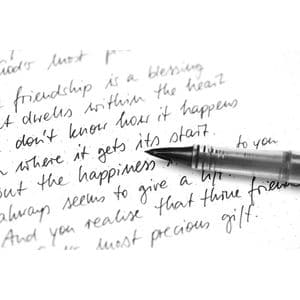 most
friendship is a blessing
t dwells within the heart
don't know how it happens
n where it gets its start.
out the happiness to you
always seems to give a lift.
And you realise that
most precious gift.